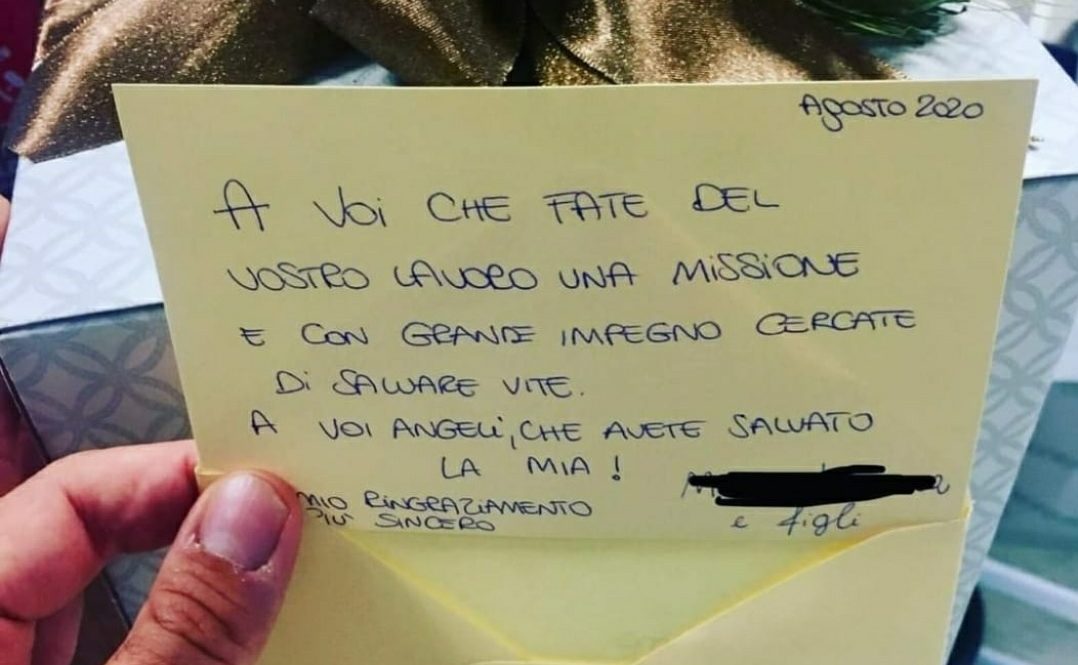 Agosto 2020
A VOI CHE FATE DEL
VOSTRO LAVORO UNA MISSIONE
E CON GRANDE IMPEGNO CERCATE
Di SALVARE VITE.
A VOI ANGELi, CHE AVETE SALVATO
LA MIA!
MIO RiNGRAZiAMENTO
PIU' SINCERO
e figli